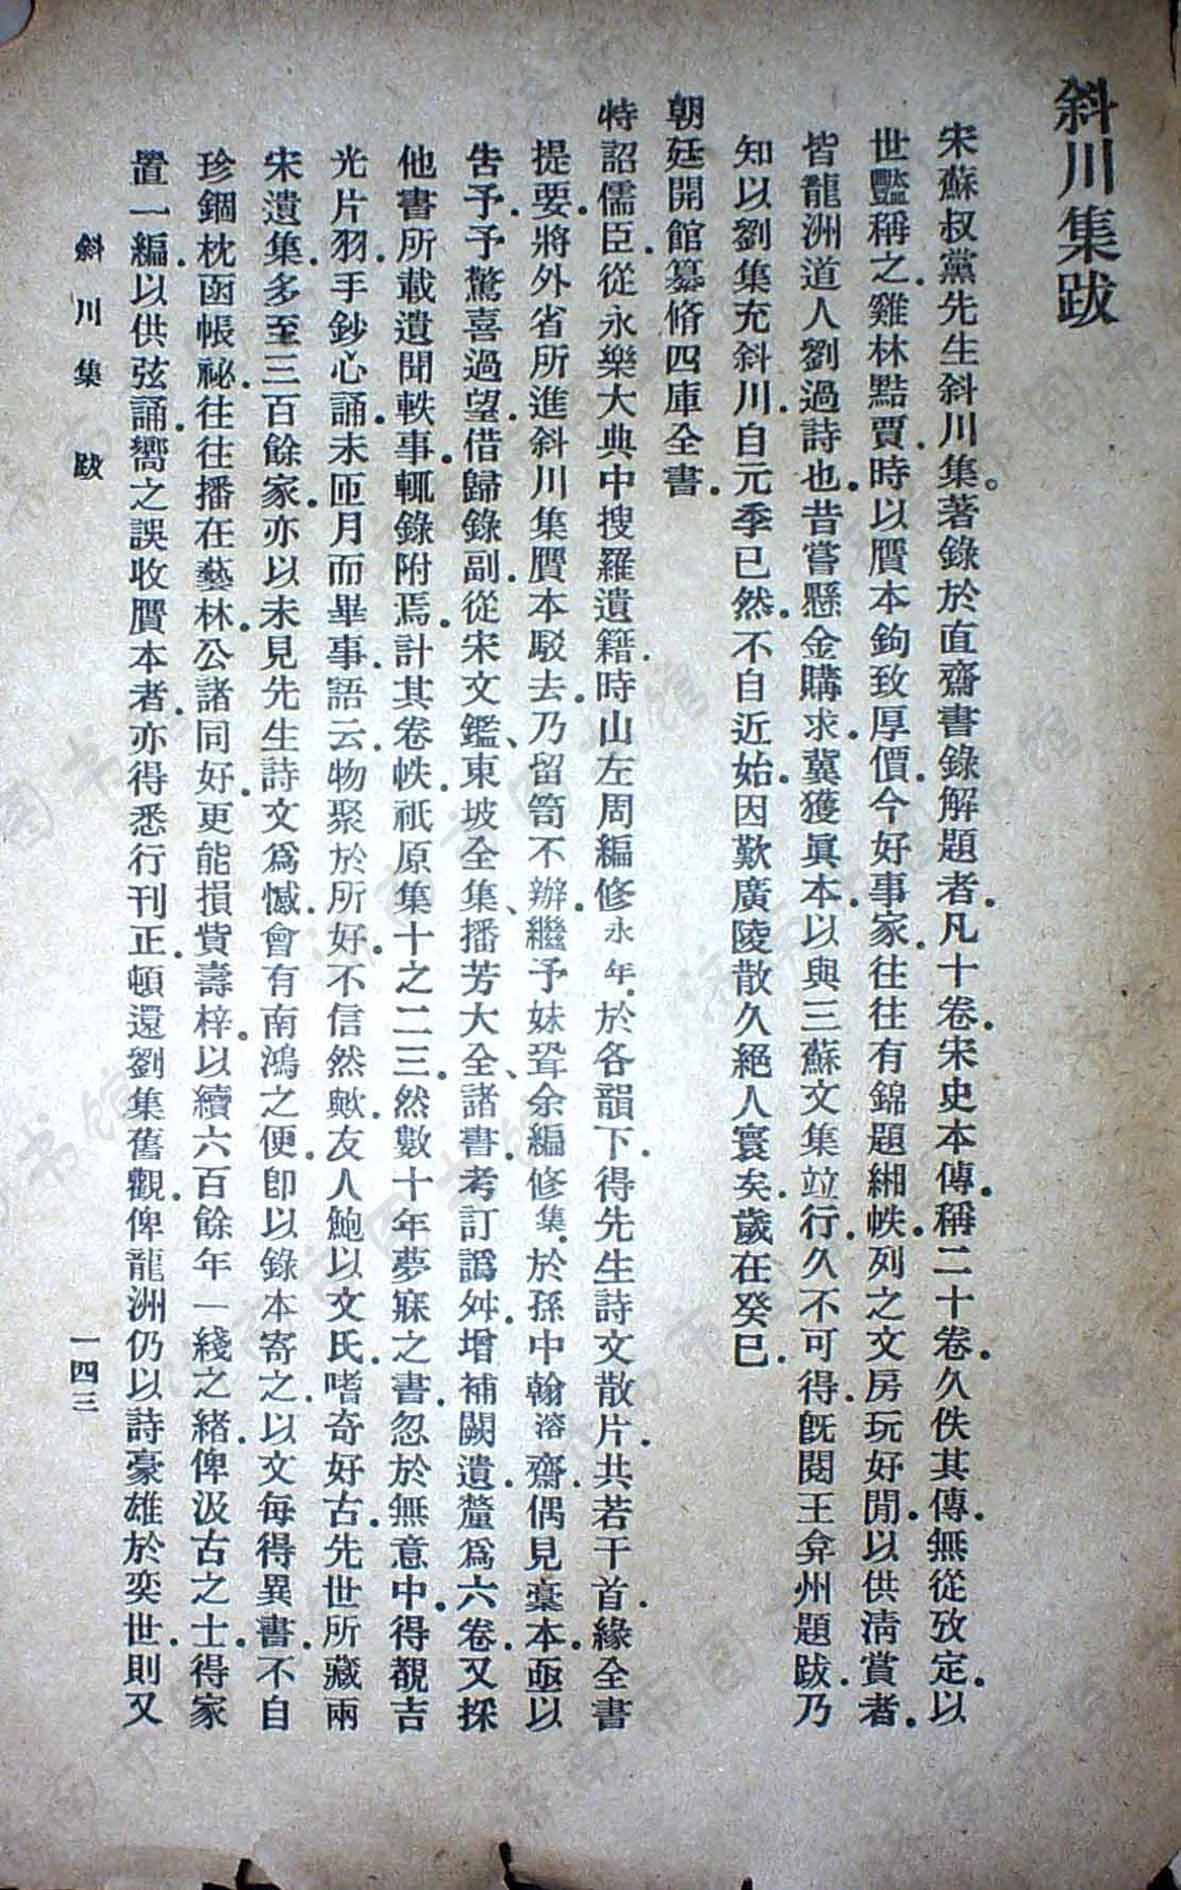 斜川集跋
宋蘇叔黨先生斜川集。著錄於直齋書錄解題者。凡十卷。宋史本傳。稱二十卷。久佚其傳。無從攷定。以
世豔稱之。雞林點賈。時以贗本鉤致厚價。今好事家。往往有錦題緗帙。列之文房玩好閒。以供淸賞者。
皆龍洲道人劉過詩也。昔嘗懸金購求。冀獲眞本。以與三蘇文集竝行。久不可得。旣閱王弇州題跋。乃
知以劉集充斜川。自元季已然。不自近始。因歎廣陵散久絕人寰矣。歲在癸巳。
朝廷開館纂脩四庫全書。
特詔儒臣。從永樂大典中搜羅遺籍。時山左周編修永年。於各韻下。得先生詩文散片。共若干首。緣全書
提要。將外省所進斜川集贗本駁去。乃留笥不辦。繼予妹壻余編修集。於孫中翰溶齋。偶見稾本。亟以
告予。予驚喜過望。借歸錄副。從宋文鑑、東坡全集、播芳大全、諸書。考訂譌舛。增補闕遺。釐爲六卷。又採
他書所載遺聞軼事。輒錄附焉。計其卷帙。祇原集十之二三。然數十年夢寐之書。忽於無意中。得覩吉
光片羽。手鈔心誦。未匝月而畢事。語云。物聚於所好。不信然歟。友人鮑以文氏。嗜奇好古。先世所藏兩
宋遺集。多至三百餘家。亦以未見先生詩文爲憾。會有南鴻之便。卽以錄本寄之。以文每得異書。不自
珍錮。枕函帳祕。往往播在藝林。公諸同好。更能損貲壽梓。以續六百餘年一綫之緒。俾汲古之士。得家
置一編。以供弦誦。嚮之誤收贗本者。亦得悉行刊正。頓還劉集舊觀。俾龍洲仍以詩豪雄於奕世。則又
斜川集跋
一四三